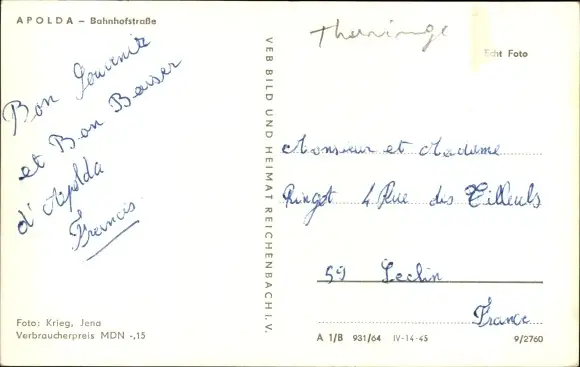 APOLDA – Bahnhofstraße
Bon Souvenir
et Bon Baiser
d'Apolda
Francis
Foto: Krieg, Jena
Verbraucherpreis MDN -,15
VEB BILD UND HEIMAT REICHENBACH I. V.
Thuringe
Echt Foto
Monsieur et Madame
Ringot 4 Rue des Tilleuls
59 Seclin
France
A 1/B 931/64 IV-14-45 9/2760